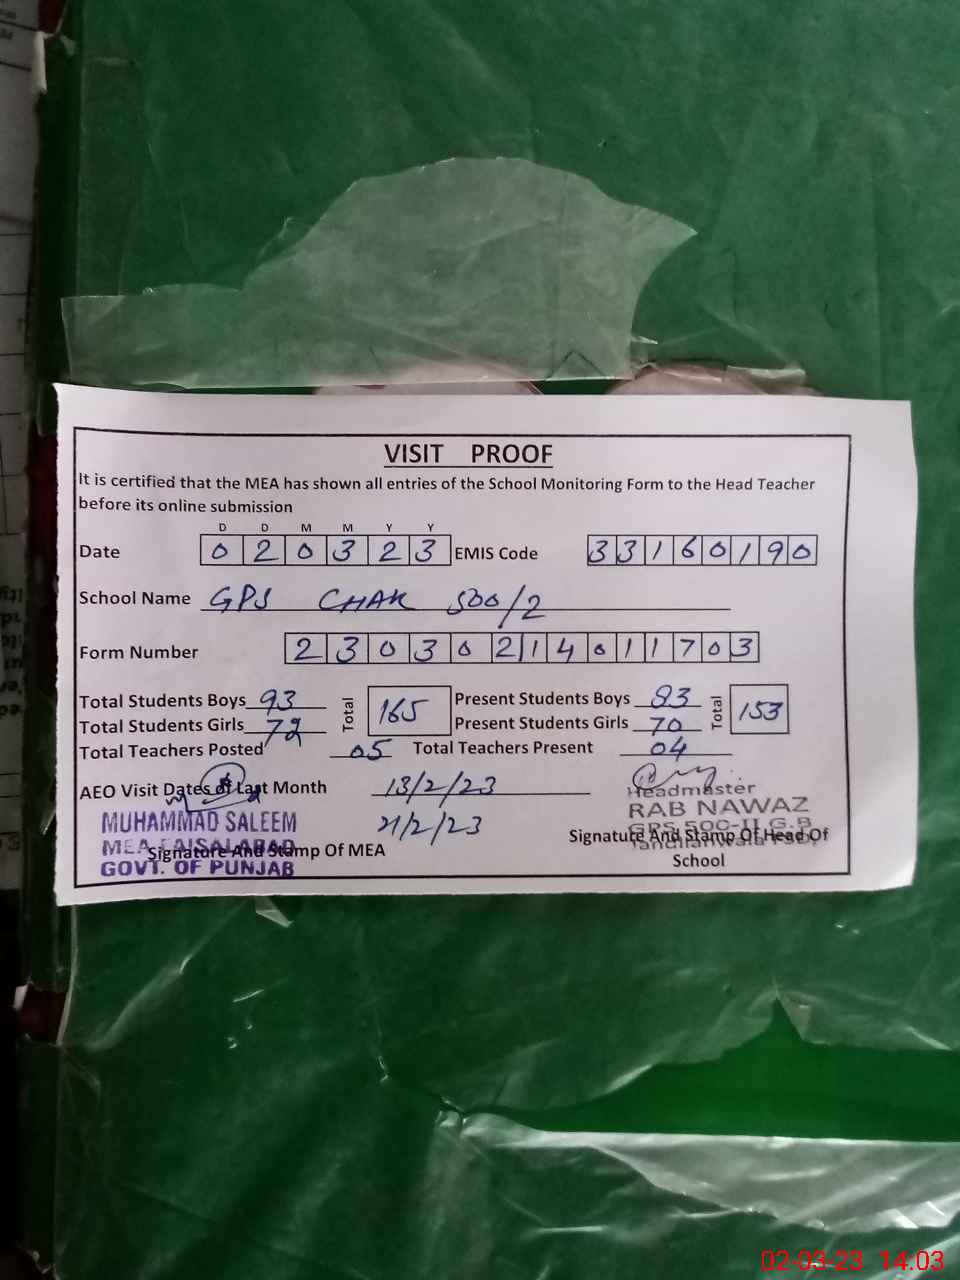 VISIT PROOF
It is certified that the MEA has shown all entries of the School Monitoring Form to the Head Teacher
before its online submission
D D M M Y Y
Date 0 2 0 3 2 3 EMIS Code 3 3 1 6 0 1 9 0
School Name GPS CHAK 500/2
Form Number 2 3 0 3 0 2 1 4 0 1 1 7 0 3
Total Students Boys 93 Total 165 Present Students Boys 83 Total 153
Total Students Girls 72 Present Students Girls 70
Total Teachers Posted 05 Total Teachers Present 04
AEO Visit Dates of Last Month 13/2/23
21/2/23
MUHAMMAD SALEEM
MEA FAISALABAD
GOVT. OF PUNJAB
Signature And Stamp Of MEA
Headmaster
RAB NAWAZ
GPS 500-II G.B
Tandlianwala FSD
Signature And Stamp Of Head Of
School
02-03-23 14:03